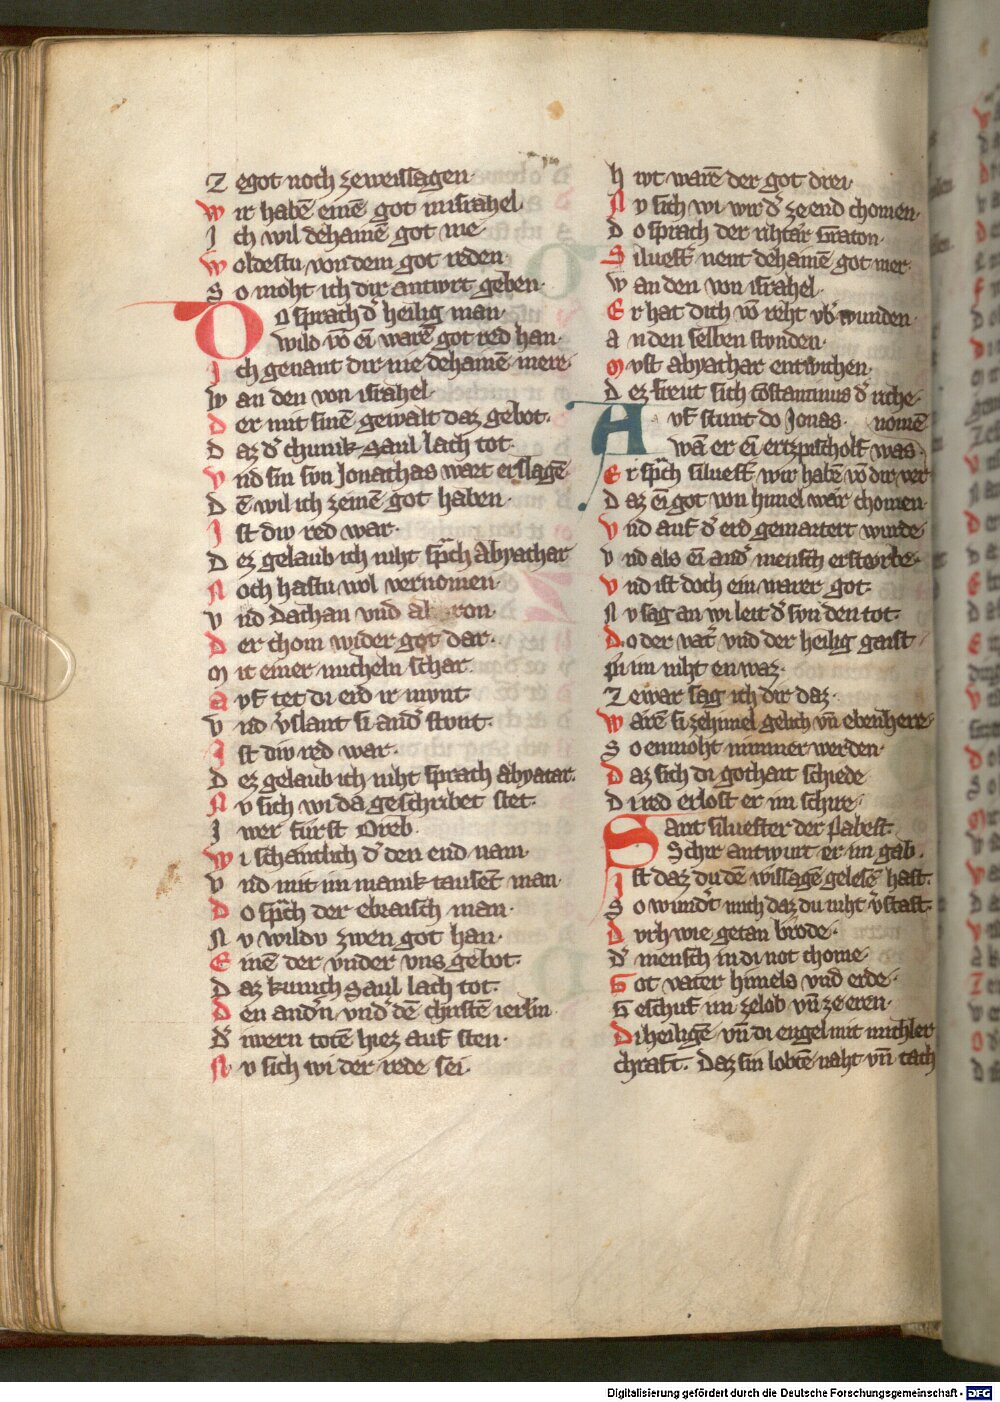 Z egot noch zeweissagen·
W ir habē einē got inisrahel·
I ch wil dehainē got me·
W oldestu von dem got reden
S o moht ich dir antwrt geben·
D o sprach d' heilig man·
wild vō ei warē got red han·
I ch genant dir nie dehainē mere·
W an den von israhel·
D er mit sinē gewalt daz gebot·
D az d' chunik saul lach tot·
V nd sin svn Jonathas wart erslagē
D ē wil ich zeinē got haben·
I st diw red war·
D ez gelaub ich niht sprach Abyathar
N och hastu wol vernomen·
V nd Dathan vnd ab ron·
D er chom wider got dar·
M it einer micheln schar·
A vf tet di erd ir mvnt·
V nd v'slant si and' stvnt·
I st diw red war·
D ez gelaub ich niht sprach Abyatar·
N v sich wi da geschribet stet·
I wer furst Oreb·
W i schantlich d' den end nam·
V nd mit im manik tausēt man·
D o sprch der ebraisch man·
N v wildv zwen got han·
E inē der vnder vns gebot·
D az kunich Saul lach tot·
D en and'n vnd' dē christē ierlin·
D' iwern totē hiez auf sten·
N v sich wi der rede sei·
h iwt warē der got drei·
N v sich wi wir d' ze end chomen·
D o sprach der rihtar Graton·
S iluest' nent dehainē got mer·
W an den von israhel·
E r hat dich vō reht vb' wunden·
a n den selben stvnden·
M vst abyathar entwichen·
D ez frevt sich costantinus d' riche·
A vf stunt do Jonas·
wā er ei ertzpischolf was· nomē
E r sprch siluest' wir habē vō dir ver
D az ein got von himel wār chomen·
V nd auf d' erd gemartert wurde
V nd als ei and' mensch ersterbe·
V nd ist doch ein warer got·
N v sag an wi leit d' svn den tot·
D o der vat' vnd der heilig gaist
Pei im niht en waz·
Z ewar sag ich dir daz·
W arē si zehimel gelich vn̄ ebenhere·
S o enmoht nimmer werden·
D az sich di gothait schiede
D i red erlost er im schire·
S ant siluester der Pabest·
Schir antwurt er im gab·
I st daz du dē wissagē gelesē hast·
S o wund't mich daz du niht v'stast·
D vrch wie getan brode·
D' mensch in di not chome·
G ot vater himels vnd erde·
G eschuf im zelob vn̄ ze eren·
D i heiligē vn̄ di engel mit michler
chraft· Daz sin lobtē naht vn̄ tach
Digitalisierung gefördert durch die Deutsche Forschungsgemeinschaft - DFG